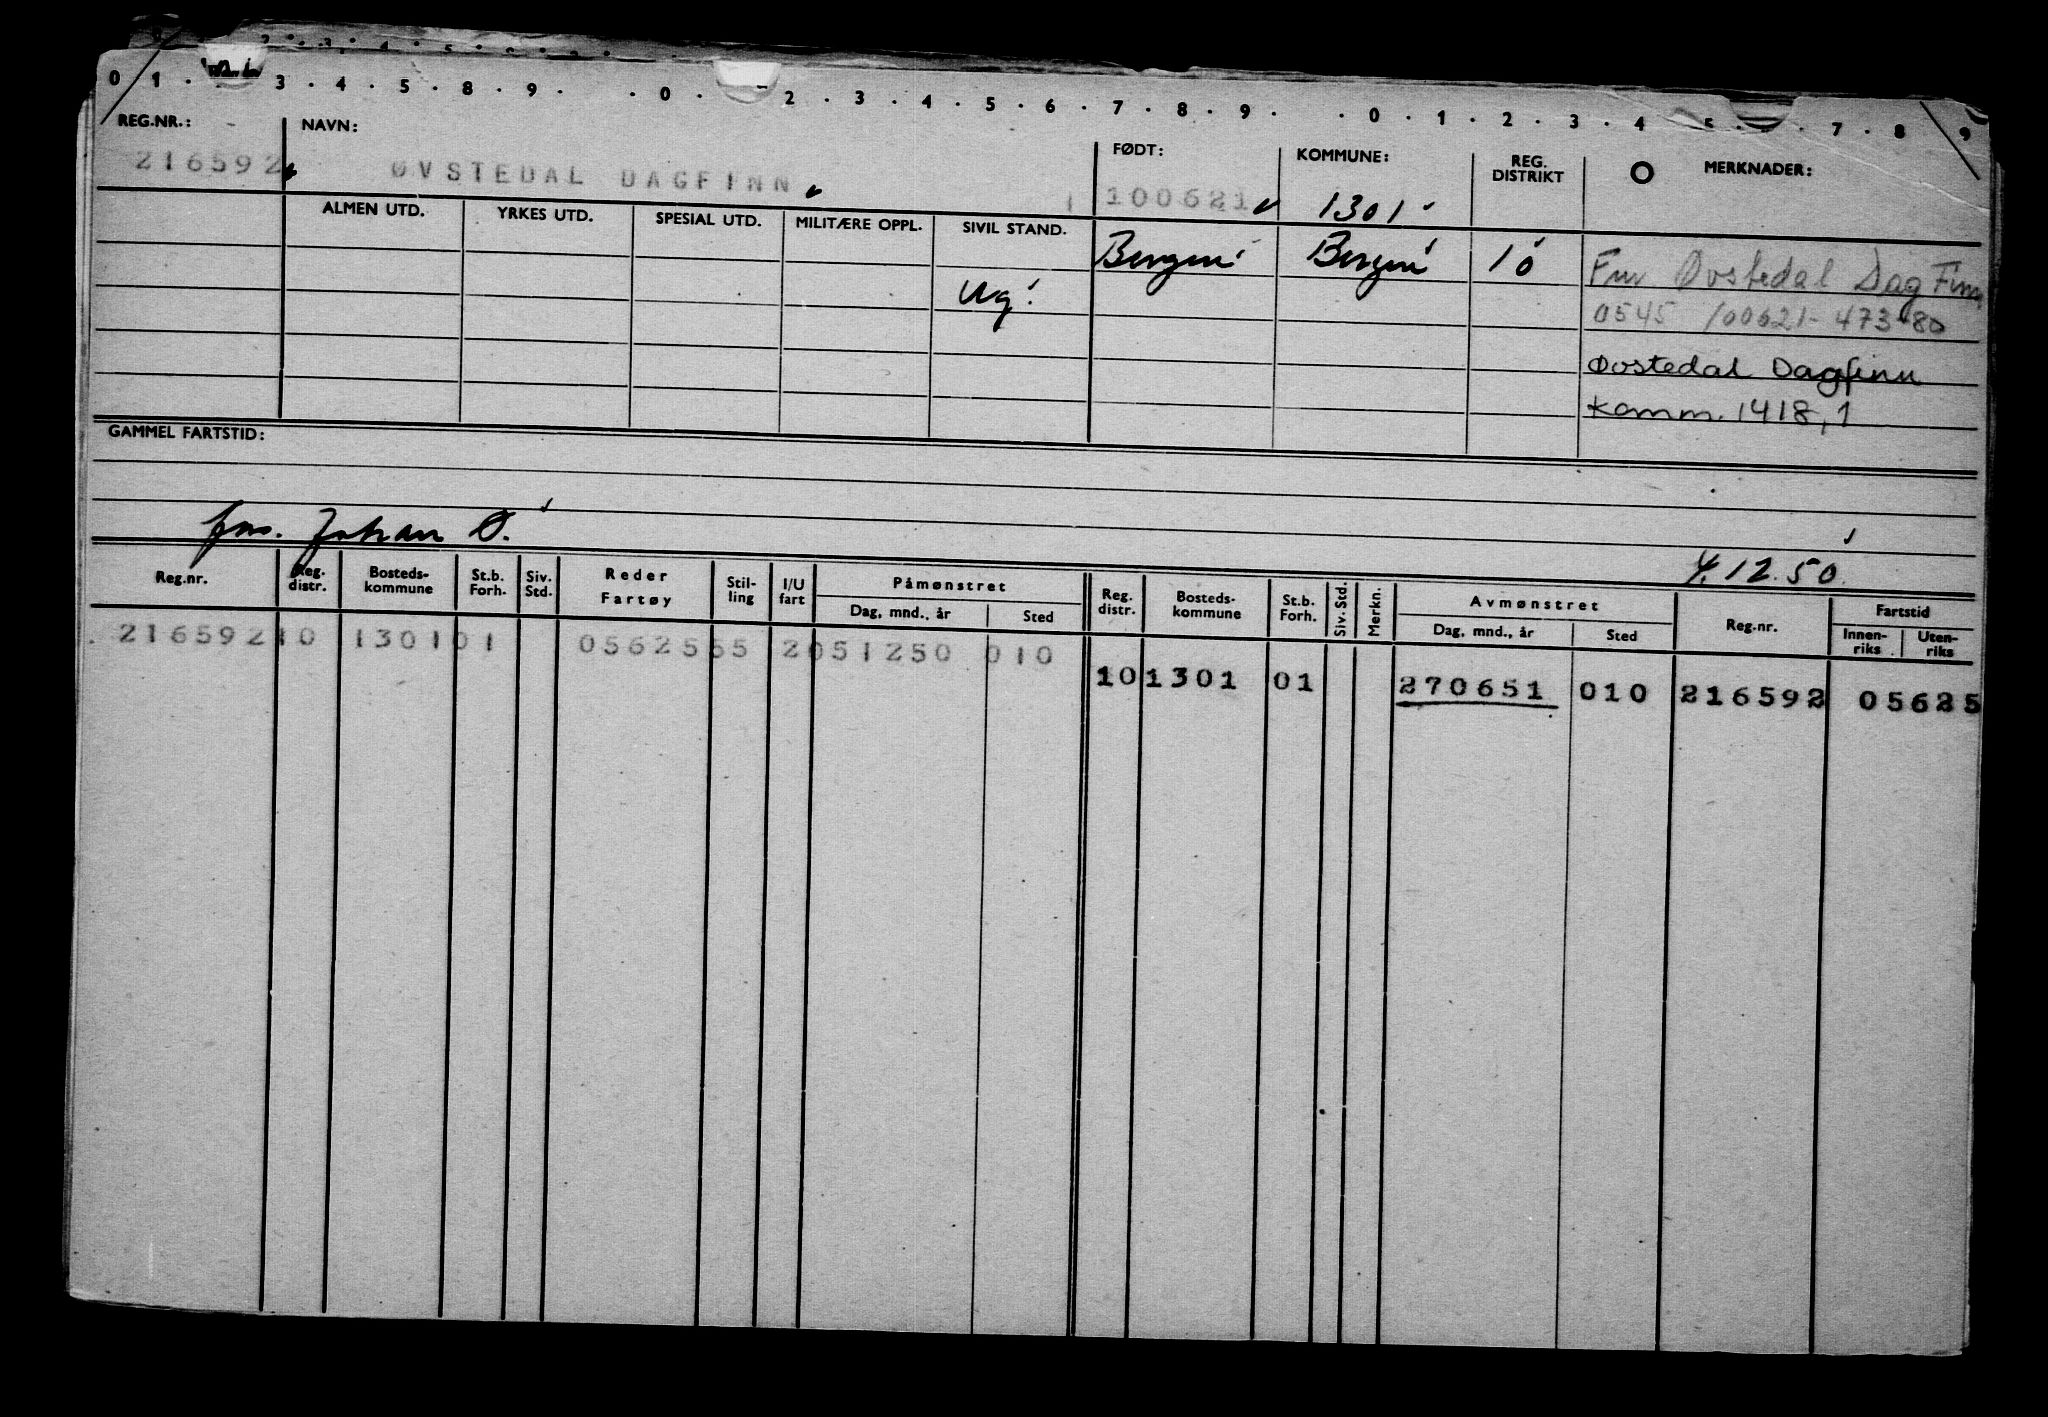 0 1 · 3 · 4 · 5 · 8 · 9 · · 0 · 2 · 3 · 4 · 5 · 6 · 7 · 8 · 9 · · 0 · 1 · 2 · 3 · 4 5 · 7 · 8 9
REG.NR.: NAVN: FØDT: KOMMUNE: REG. DISTRIKT MERKNADER:
216592 ØVSTEDAL DAGFINN 100621 1301
ALMEN UTD. YRKES UTD. SPESIAL UTD. MILITÆRE OPPL. SIVIL STAND.
Bergen Bergen 10 Fnr Øvstedal Dag Finn
Ug. 0545 100621-473-80
Øvstedal Dagfinn
Komm. 1418,1
GAMMEL FARTSTID:
Johan Ø. 4.12.50
Reg.nr. Reg. distr. Bosteds-kommune St.b. Forh. Siv. Std. Reder Fartøy Stil-ling I/U fart Påmønstret Dag, mnd., år Sted Reg. distr. Bosteds-kommune St.b. Forh. Siv. Std. Merkn. Avmønstret Dag, mnd., år Sted Reg.nr. Fartstid Innen-riks Uten-riks
216592 10 1301 01 05625 55 2 051250 010
10 1301 01 270651 010 216592 05625